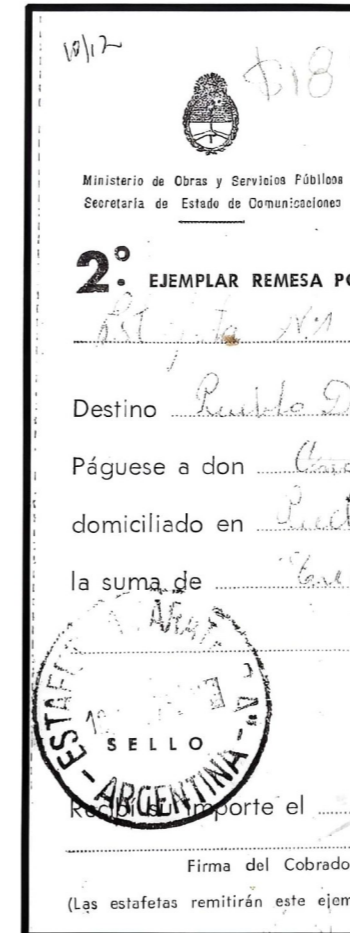 10/12
$18
Ministerio de Obras y Servicios Públicos
Secretaría de Estado de Comunicaciones
2º EJEMPLAR REMESA PO
Nº1
Destino Pueblo D
Páguese a don
domiciliado en
la suma de
ESTAFETA
SELLO
ARGENTINA
Recibí su importe el
Firma del Cobrado
(Las estafetas remitirán este ejem